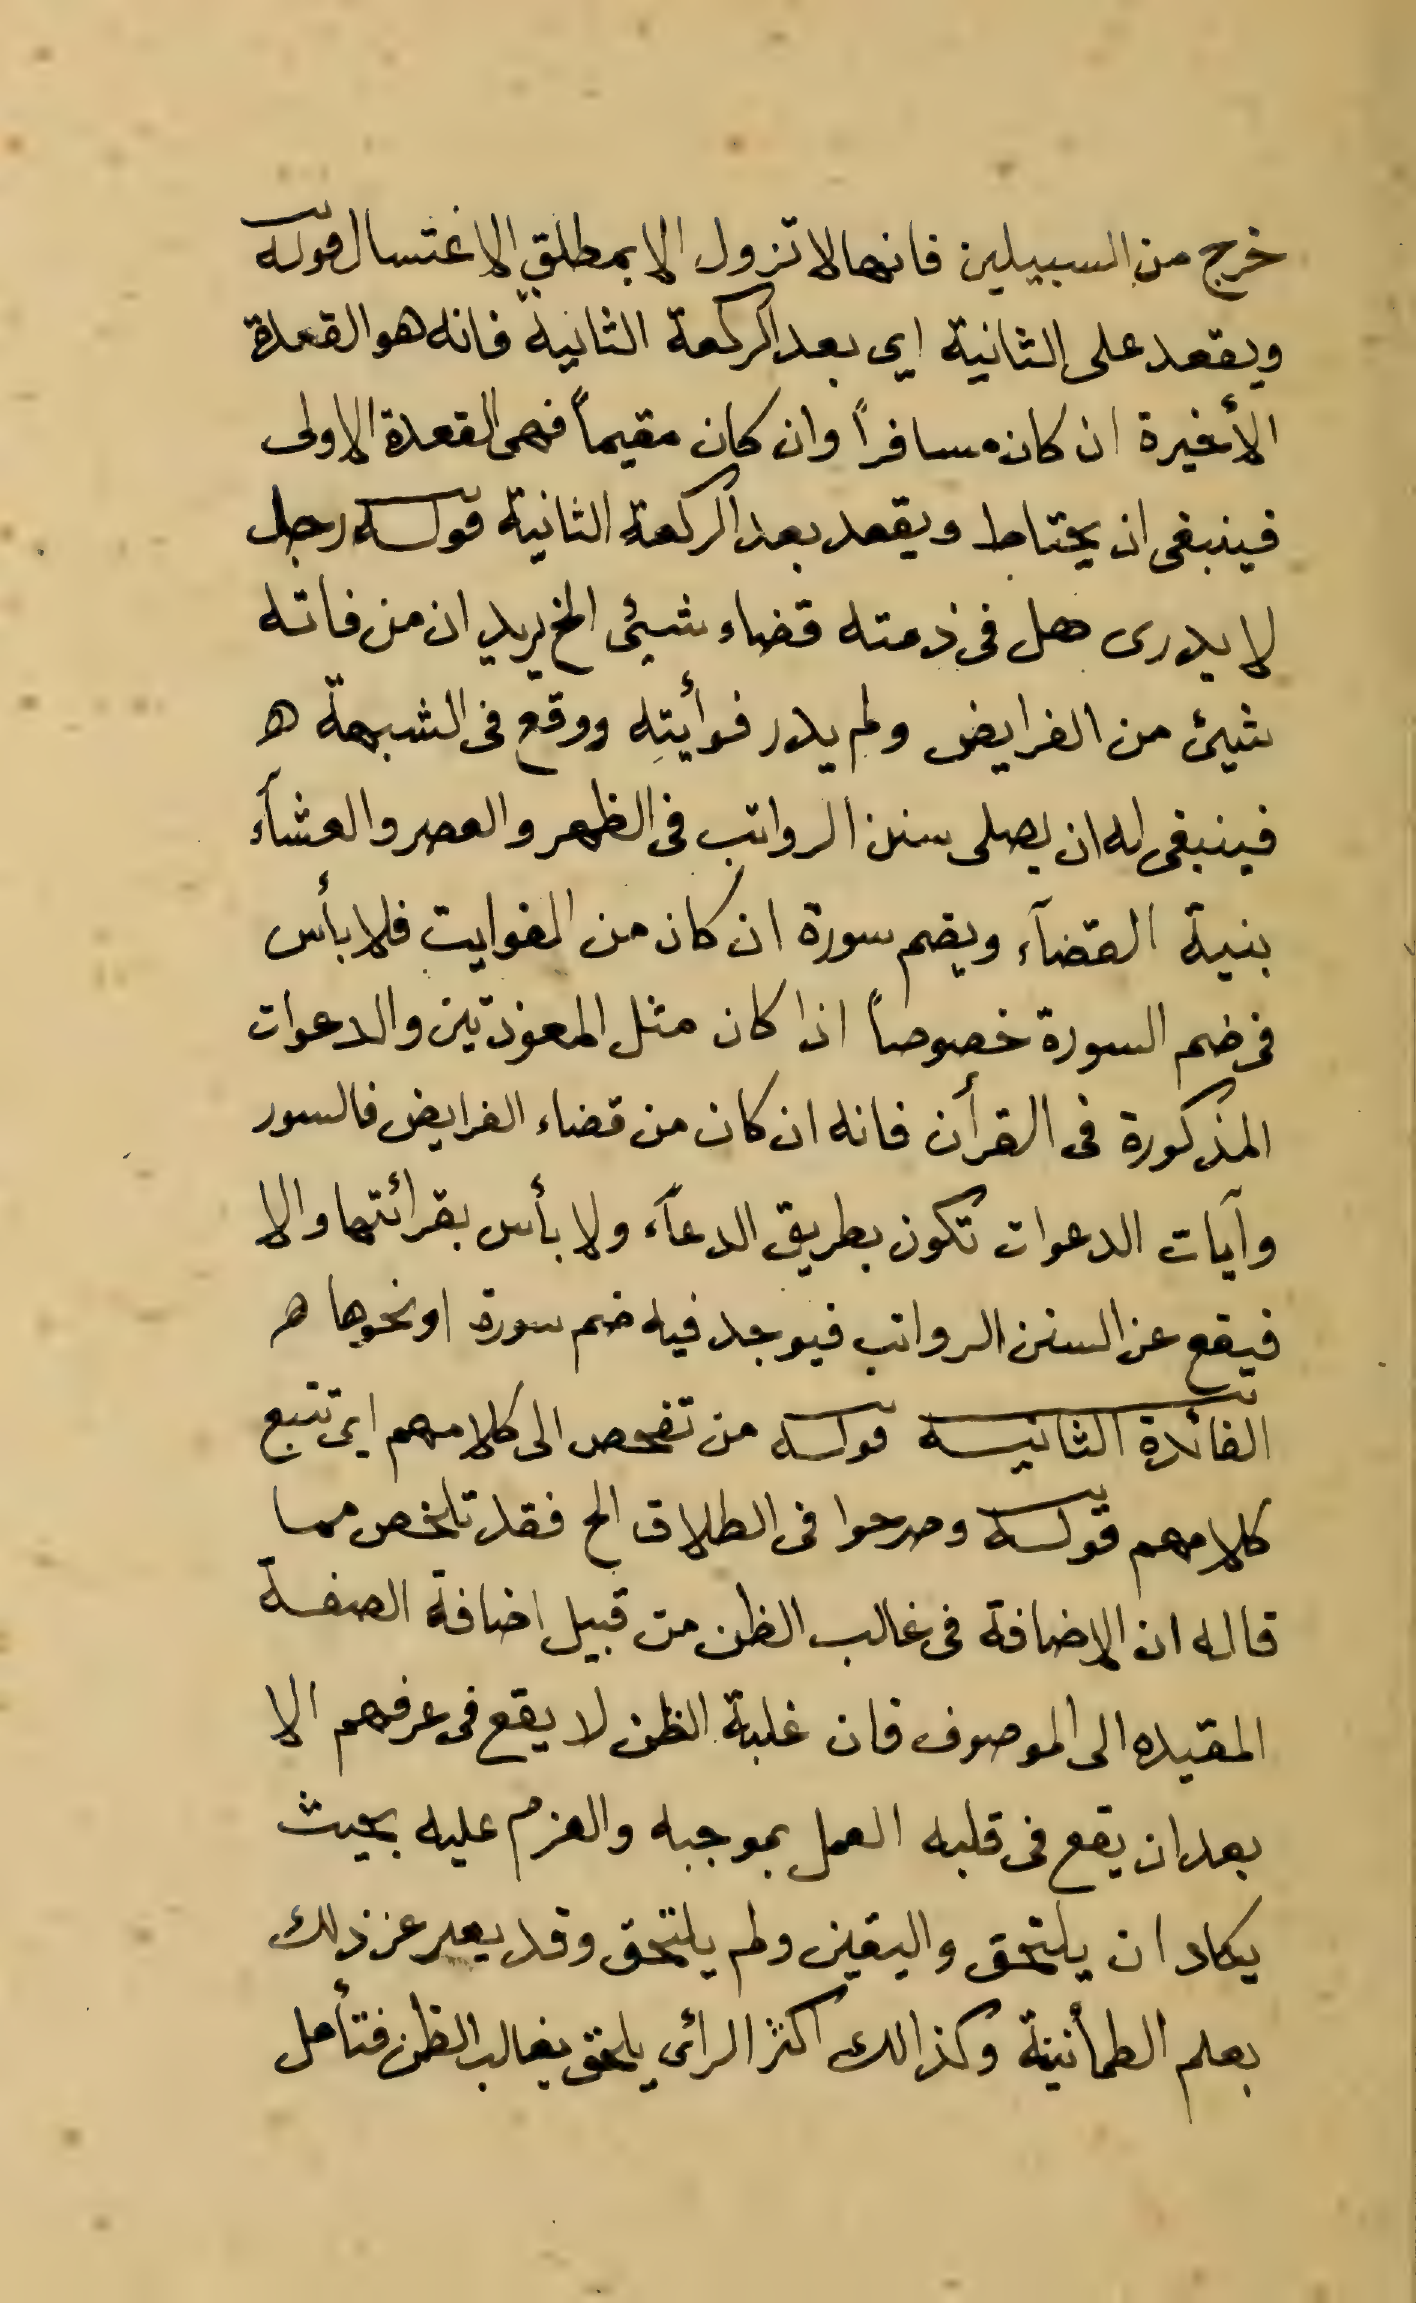 خرج من السبيلين فانها لا تزول الا بمطلق الاغتسال قوله
ويقعد على الثانية اي بعد الركعة الثانية فانه هو القعدة
الأخيرة ان كان مسافراً وان كان مقيماً فهى القعدة الاولى
فينبغى ان يحتاط ويقعد بعد الركعة الثانية قوله رجل
لا يدرى هل فى ذمته قضاء شيئ الخ يريد ان من فاته
شيئ من الفرايض ولم يدر فوأيته ووقع فى الشبهة ه
فينبغى له ان يصلى سنن الرواتب فى الظهر والعصر والعشآء
بنية القضآء ويضم سورة ان كان من الفوايت فلا بأس
فى ضم السورة خصوصاً اذا كان مثل المعوذتين والدعوات
المذكورة فى القرأن فانه ان كان من قضاء الفرايض فالسور
وآيات الدعوات تكون بطريق الدعآء ولا بأس بقرائتها والا
فيقع عن السنن الرواتب فيوجد فيه ضم سورة او نحوها ه
الفائدة الثانيه قوله من تفحص الى كلامهم اى تتبع
كلامهم قوله وصرحوا فى الطلاق الخ فقد تلخص مما
قاله ان الاضافة فى غالب الظن من قبيل اضافة الصفة
المقيده الى الموصوف فان غلبة الظن لا يقع فى عرفهم الا
بعد ان يقع فى قلبه العمل بموجبه والعزم عليه بحيث
يكاد ان يلتحق واليقين ولم يلتحق وقد يعبر عن ذلك
بعلم الطمأنينة وكذالك اكثر الرائى يلحق بغالب الظن فتأمل